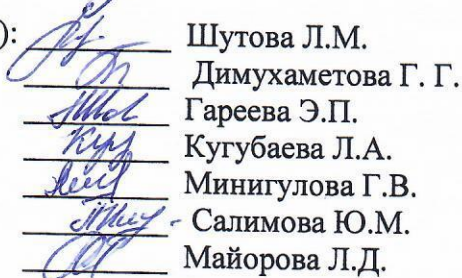 ): Шутова Л.М.
Димухаметова Г. Г.
Гареева Э.П.
Кугубаева Л.А.
Минигулова Г.В.
Салимова Ю.М.
Майорова Л.Д.